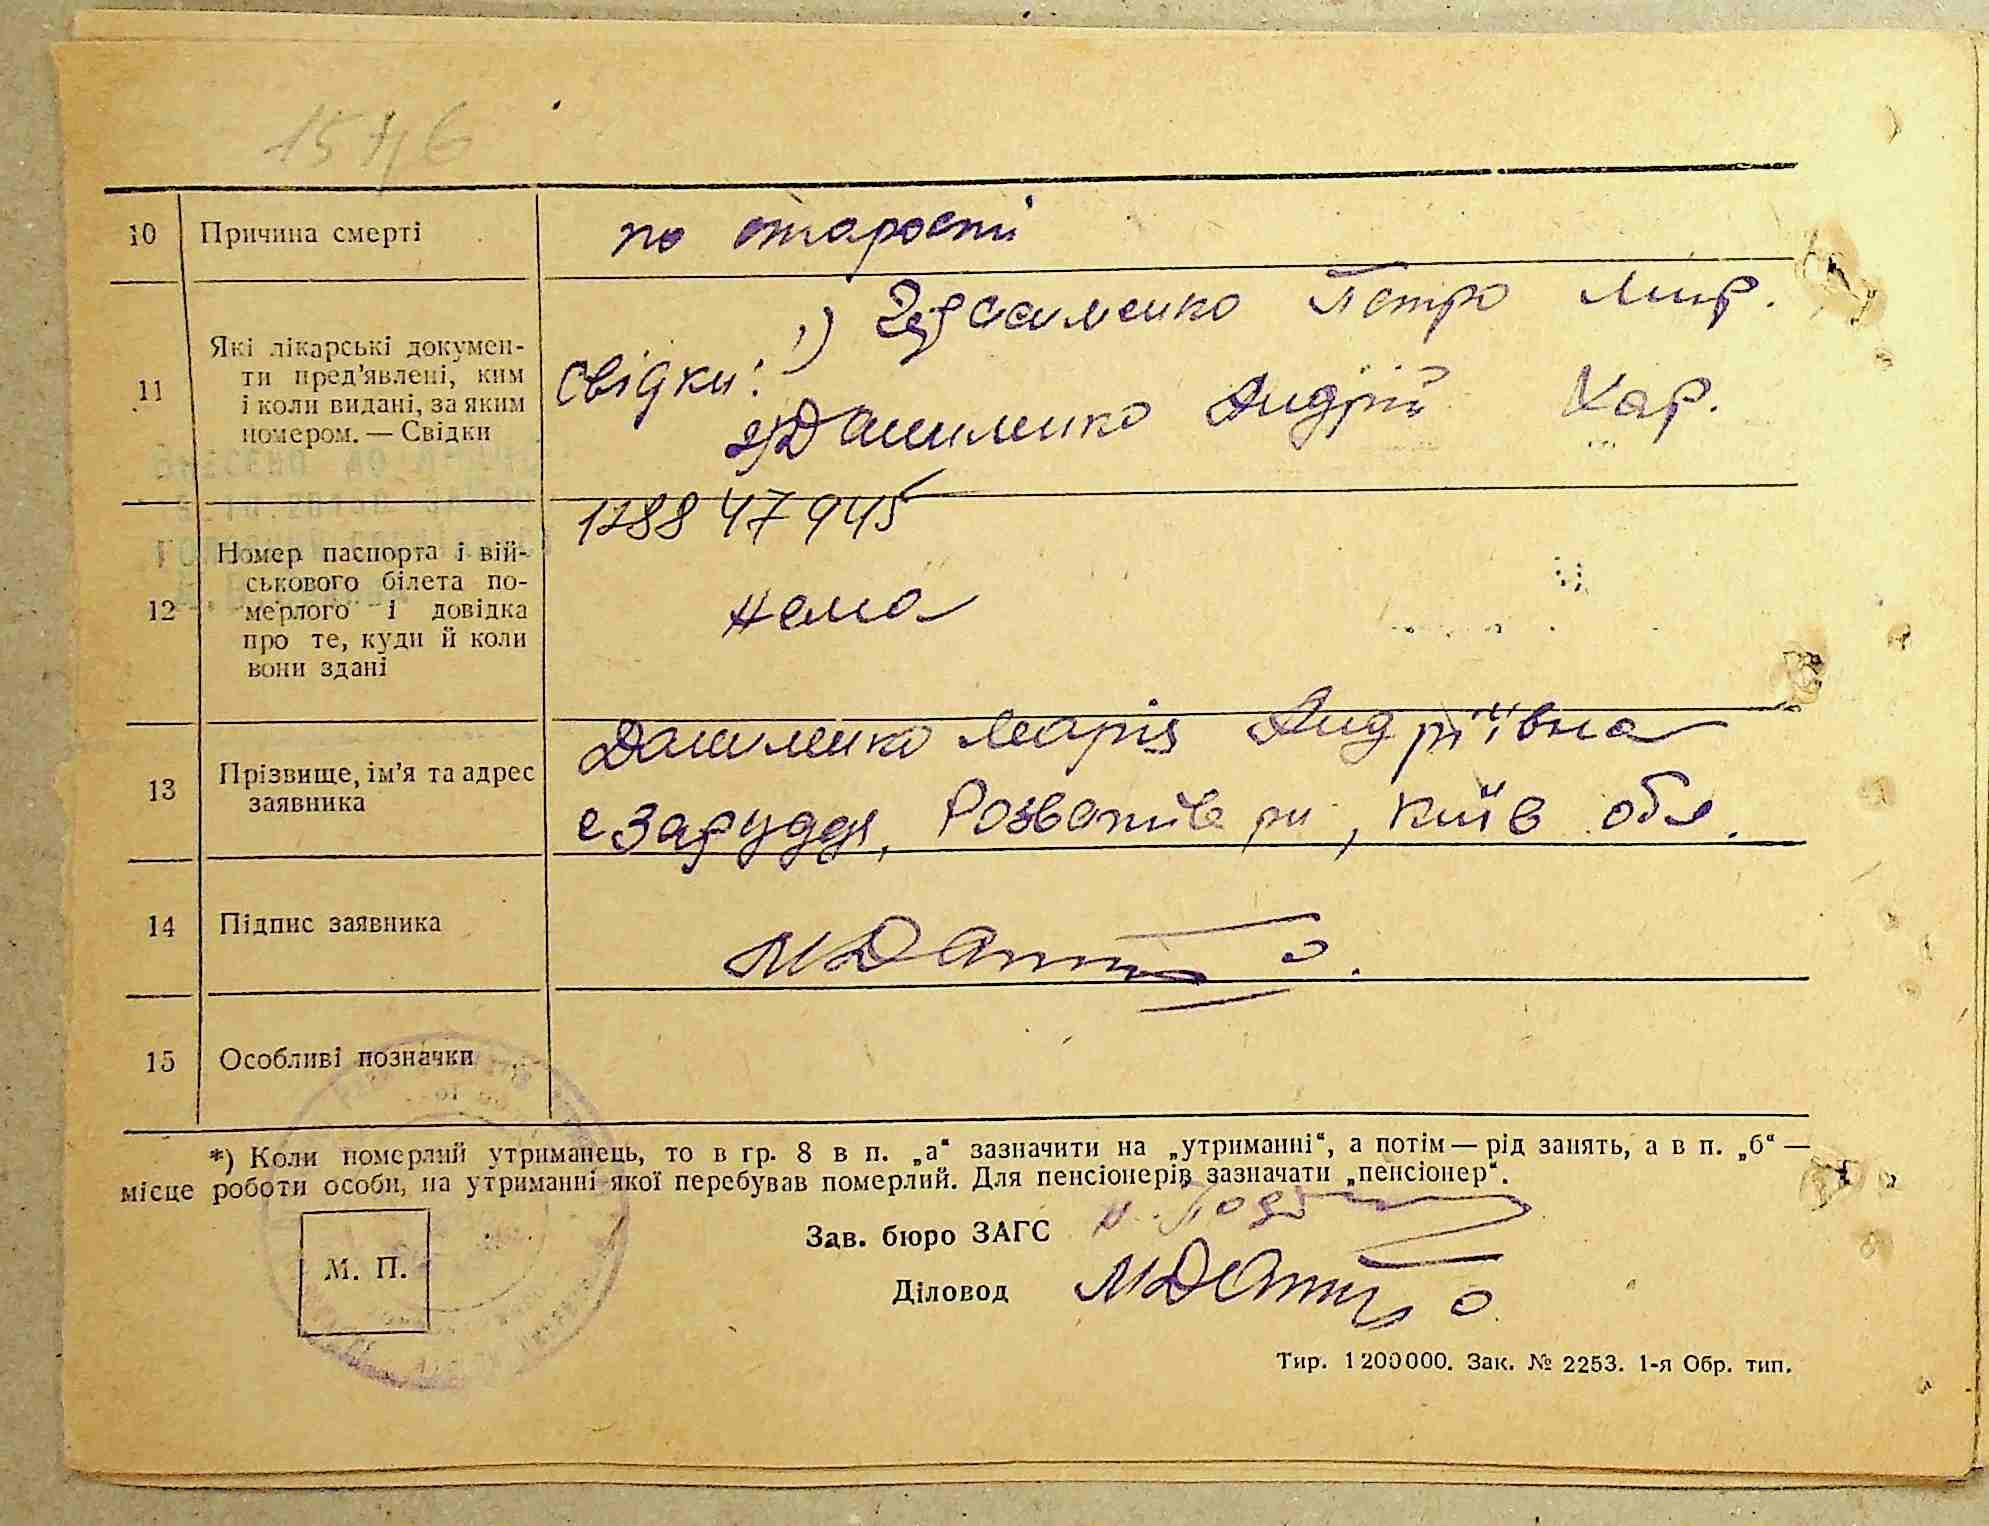 10 Причина смерті по старості
11 Які лікарські докумен-
ти пред'явлені, ким
і коли видані, за яким
номером. — Свідки
Свідки: 1) Петро Мир.
2) Андрій Хар.
12 Номер паспорта і вій-
ськового білета по-
мерлого і довідка
про те, куди й коли
вони здані
нема
13 Прізвище, ім'я та адрес
заявника
Марія Андріївна
с Заруддя, Розважів рн, Київ обл.
14 Підпис заявника
15 Особливі позначки
*) Коли померлий утриманець, то в гр. 8 в п. „а“ зазначити на „утриманні“, а потім — рід занять, а в п. „б“ —
місце роботи особи, на утриманні якої перебував померлий. Для пенсіонерів зазначати „пенсіонер“.
Зав. бюро ЗАГС
М. П.
Діловод
Тир. 1200000. Зак. № 2253. 1-я Обр. тип.